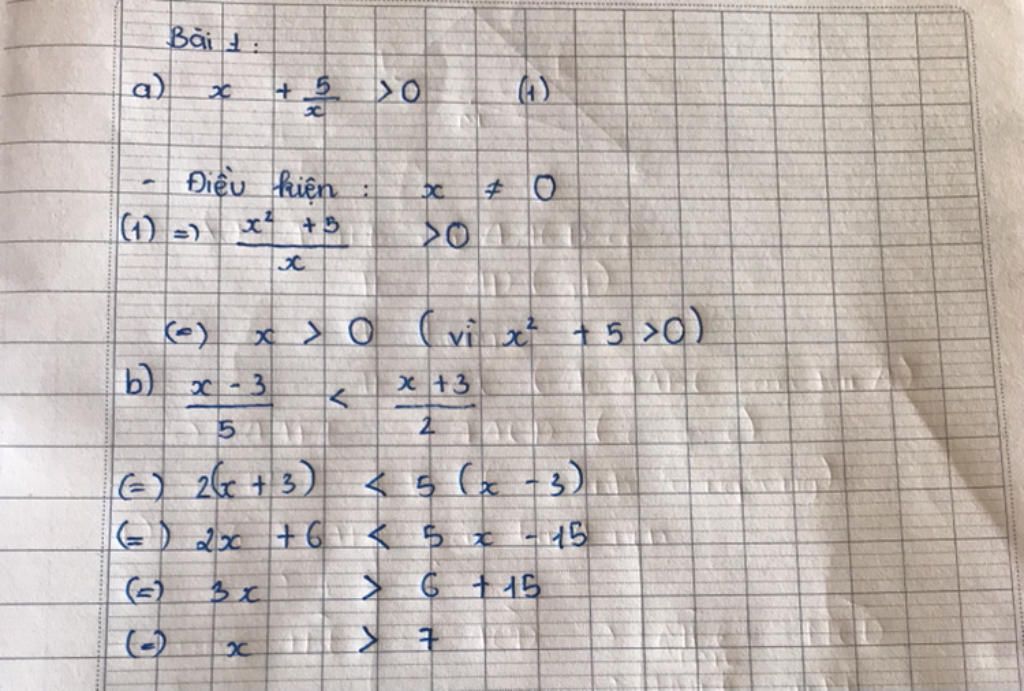 Bài 1 :
a) x + 5/x > 0 (1)
- Điều kiện : x ≠ 0
(1) => (x² + 5)/x > 0
(=) x > 0 ( vì x² + 5 > 0 )
b) (x - 3)/5 < (x + 3)/2
(=) 2(x + 3) < 5 (x - 3)
(=) 2x + 6 < 5 x - 15
(=) 3x > 6 + 15
(=) x > 7